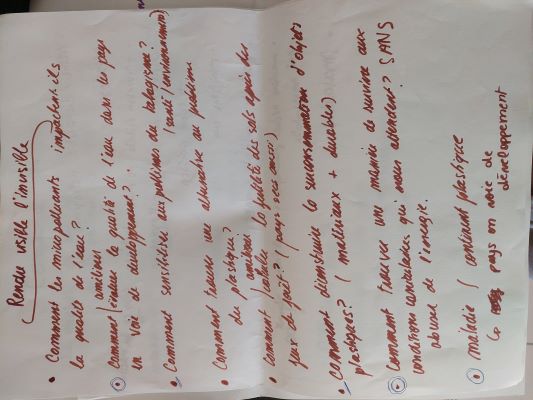 Rendre visible l'invisible
• Comment les micropolluants impactent-ils
la qualité de l'eau?
améliorer
• Comment / évaluer la qualité de l'eau dans les pays
en voie de développement?
• Comment sensibiliser aux problèmes du tabagisme?
(santé / environnement)
• Comment trouver une alternative au problème
du plastique?
améliorer
• Comment la fertilité des sols après des
feux de forêt? (pays secs aussi)
• Comment diminuer la surconsommation d'objets
plastiques? (matériaux + durables)
• Comment trouver une manière de survivre aux
conditions qui nous attendent? SANS
de l'énergie.
• maladie / contenant plastique
pays en voie de
développement